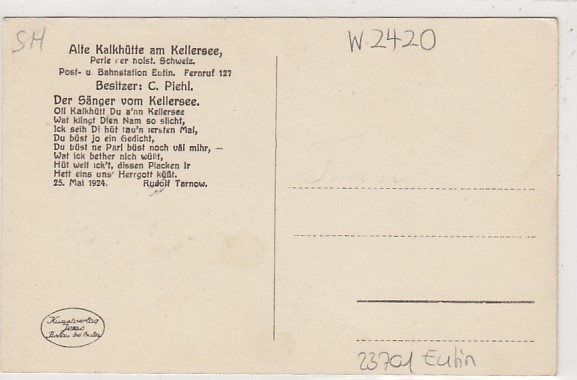 SH
W 2420
Alte Kalkhütte am Kellersee,
Perle der holst. Schweiz.
Post- u. Bahnstation Eutin. Fernruf 127
Besitzer: C. Piehl.
Der Sänger vom Kellersee.
Oll Kalkhütt Du a'nn Kellersee
Wat klingt Dien Nam so slicht,
Ick seih Di hüt tau'n iersten Mal,
Du büst jo ein Gedicht,
Du büst ne Parl büst noch väl mihr, —
Wat ick bether nich wüßt,
Hüt weit ick't, dissen Placken Ir
Hett eins uns' Herrgott küßt.
25. Mai 1924. Rudolf Tarnow.
Kunstverlag
bei
23701 Eutin